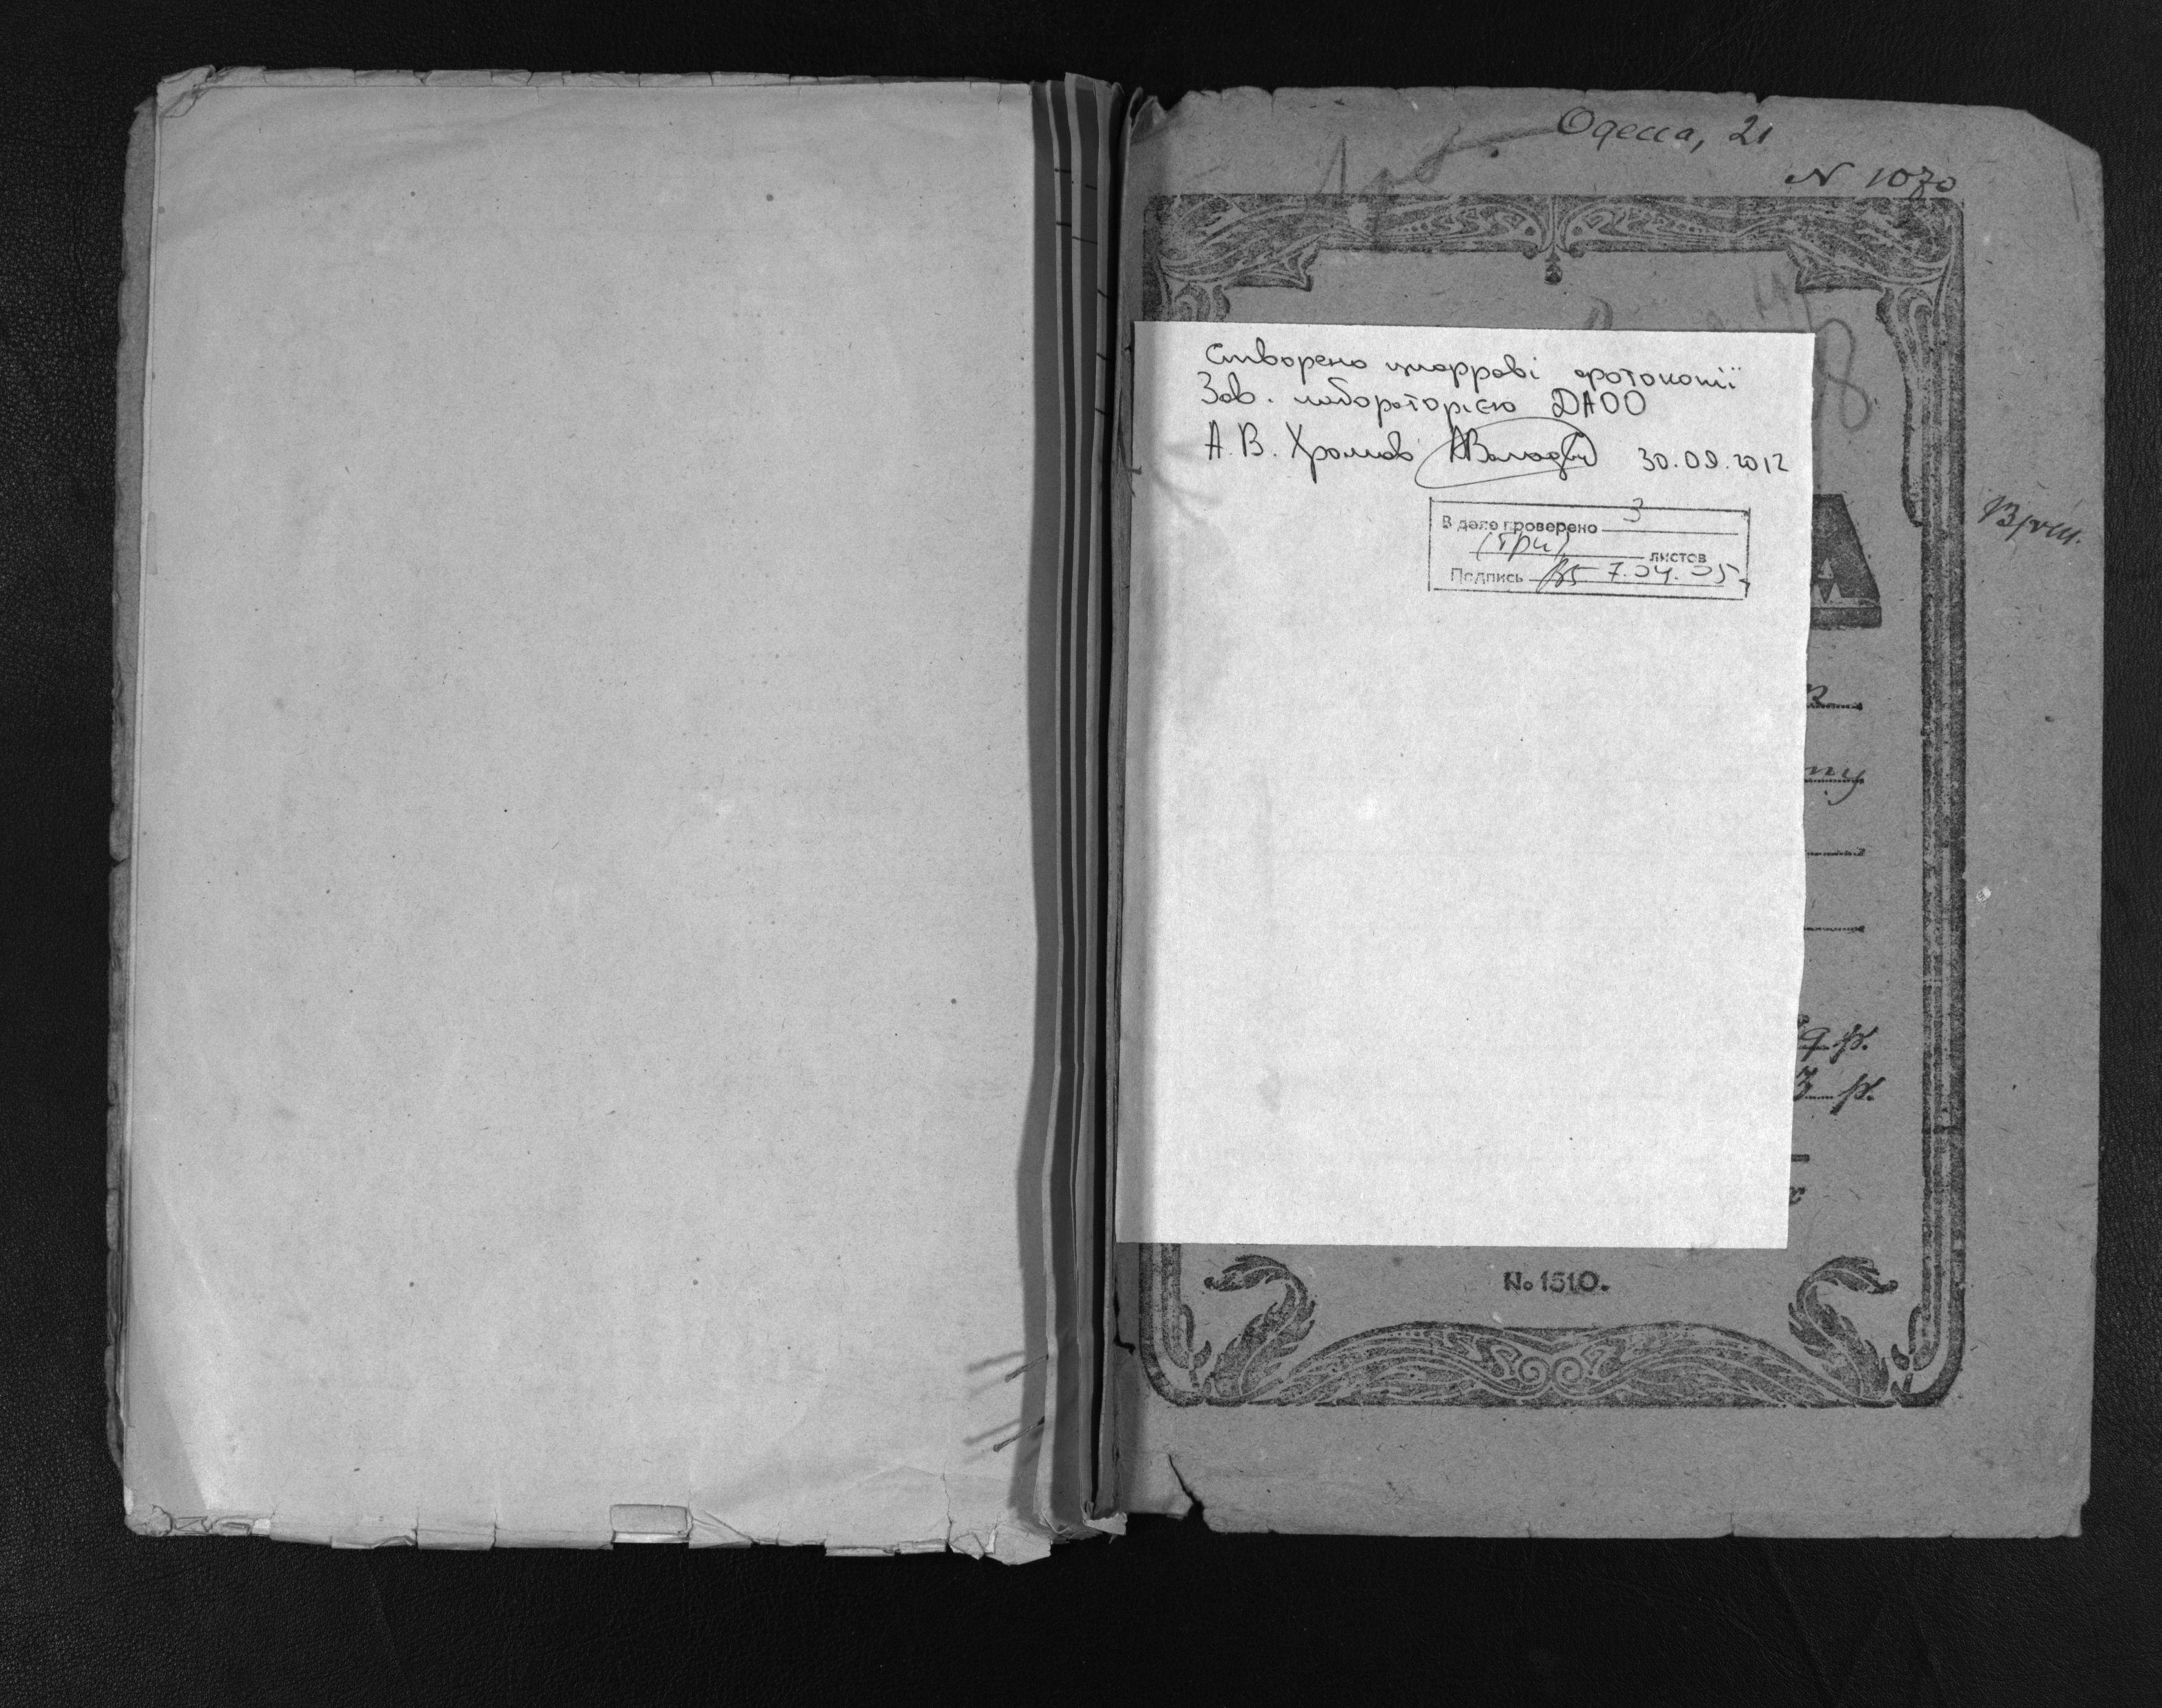 Одесса, 21
N 1070
Створено цифрові фотокопії
Зав. лабораторією ДАОО
А. В. Хромов 30.09.2012
В деле проверено 3
(три) листов
Подпись 7.04.05
№ 1510.